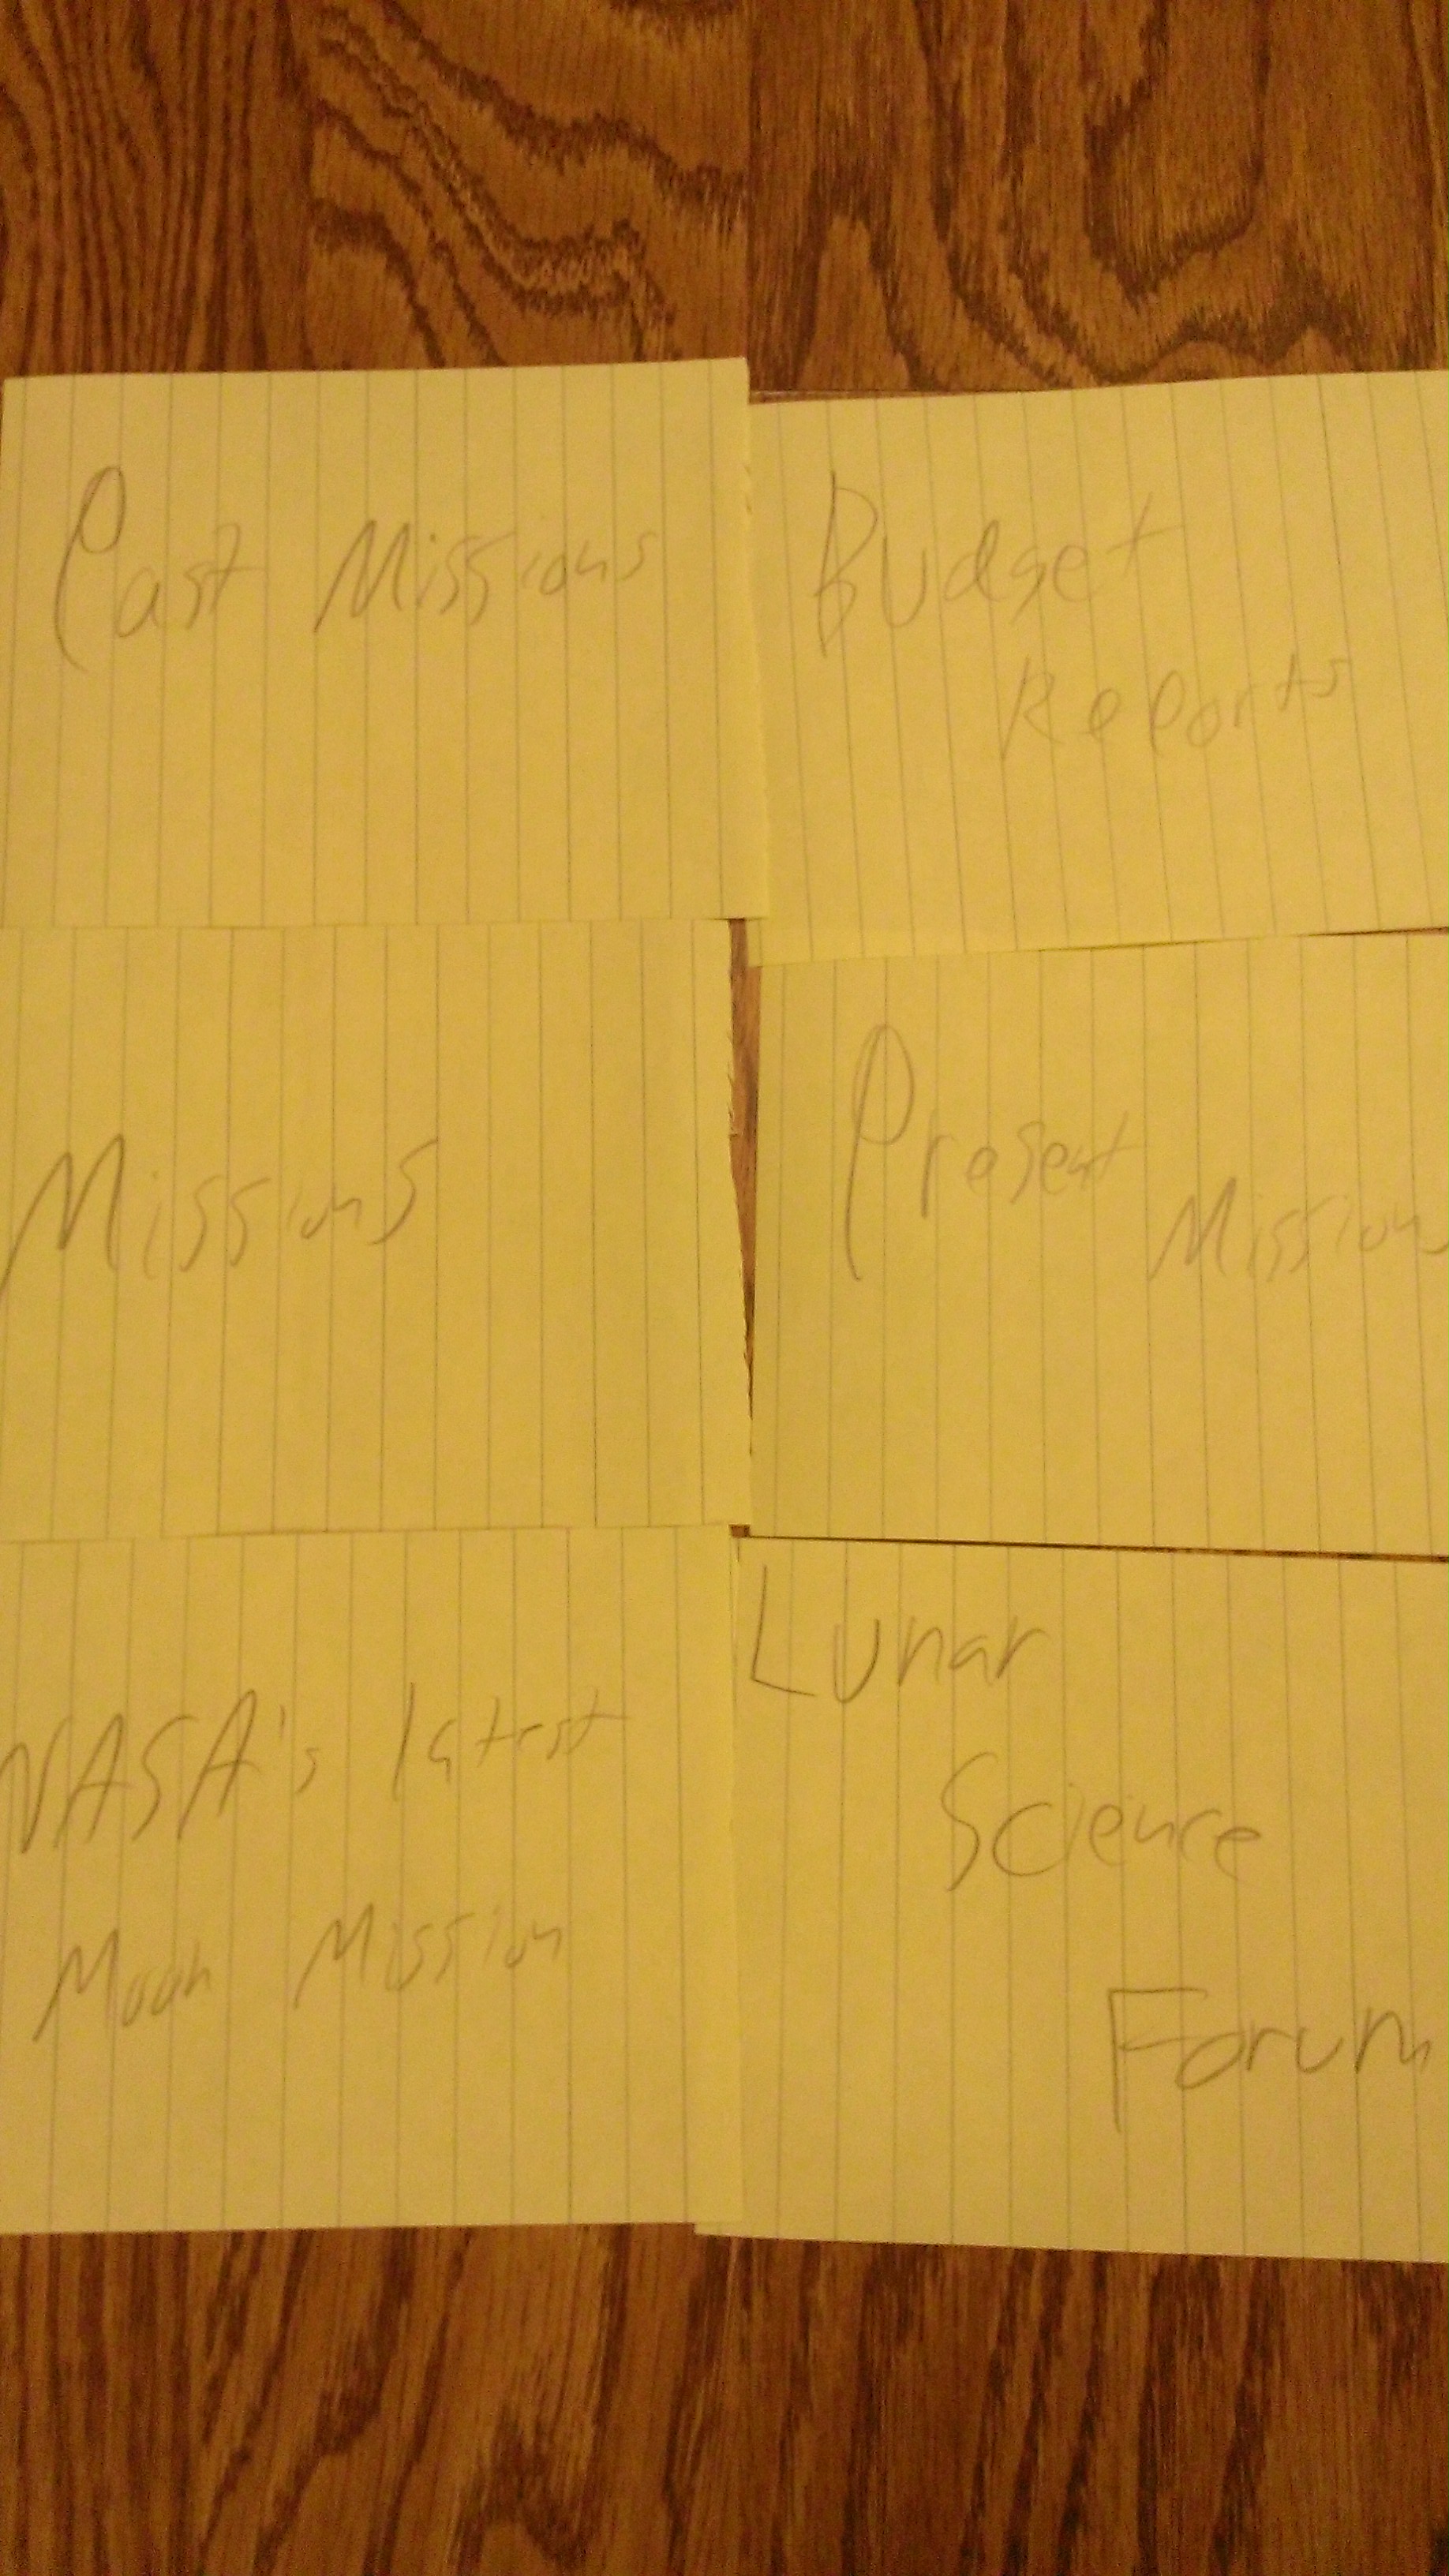 Past Missions
Budget
Reports
Missions
Present
Missions
NASA's latest
Moon Mission
Lunar
Science
Forum